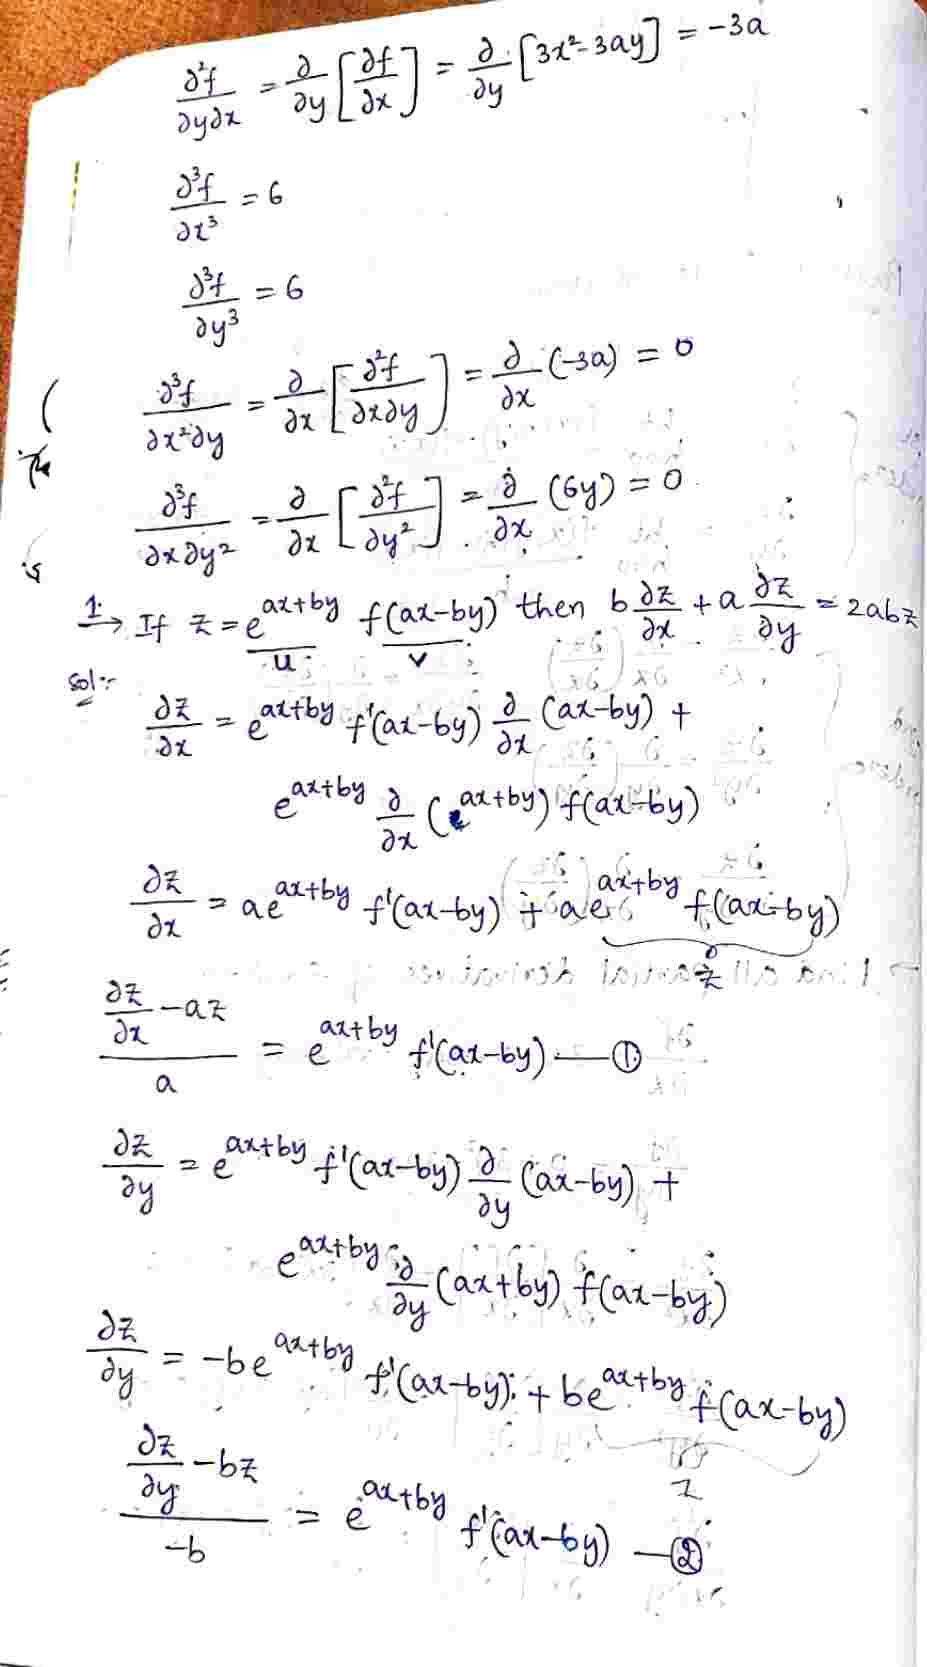 ∂²f/∂y∂x = ∂/∂y [∂f/∂x] = ∂/∂y [3x²-3ay] = -3a
∂³f/∂x³ = 6
∂³f/∂y³ = 6
∂³f/∂x²∂y = ∂/∂x [∂²f/∂x∂y] = ∂/∂x (-3a) = 0
∂³f/∂x∂y² = ∂/∂x [∂²f/∂y²] = ∂/∂x (6y) = 0
1. → If z = e^(ax+by) f(ax-by) then b ∂z/∂x + a ∂z/∂y = 2abz
u v
Sol:-
∂z/∂x = e^(ax+by) f'(ax-by) ∂/∂x (ax-by) +
e^(ax+by) ∂/∂x (e^(ax+by)) f(ax-by)
∂z/∂x = ae^(ax+by) f'(ax-by) + ae^(ax+by) f(ax-by)
z
(∂z/∂x - az)/a = e^(ax+by) f'(ax-by) — ①
∂z/∂y = e^(ax+by) f'(ax-by) ∂/∂y (ax-by) +
e^(ax+by) ∂/∂y (ax+by) f(ax-by)
∂z/∂y = -be^(ax+by) f'(ax-by) + be^(ax+by) f(ax-by)
z
(∂z/∂y - bz)/-b = e^(ax+by) f'(ax-by) — ②